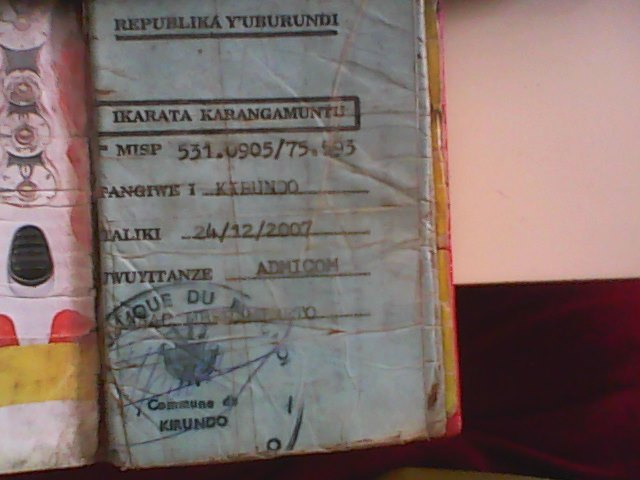 REPUBLIKA Y'UBURUNDI
IKARATA KARANGAMUNTU
MISP 531.0905/75.593
FANGIWE I KIRUNDO
TALIKI 24/12/2007
WUYITANZE ADMICOM
Commune de
KIRUNDO